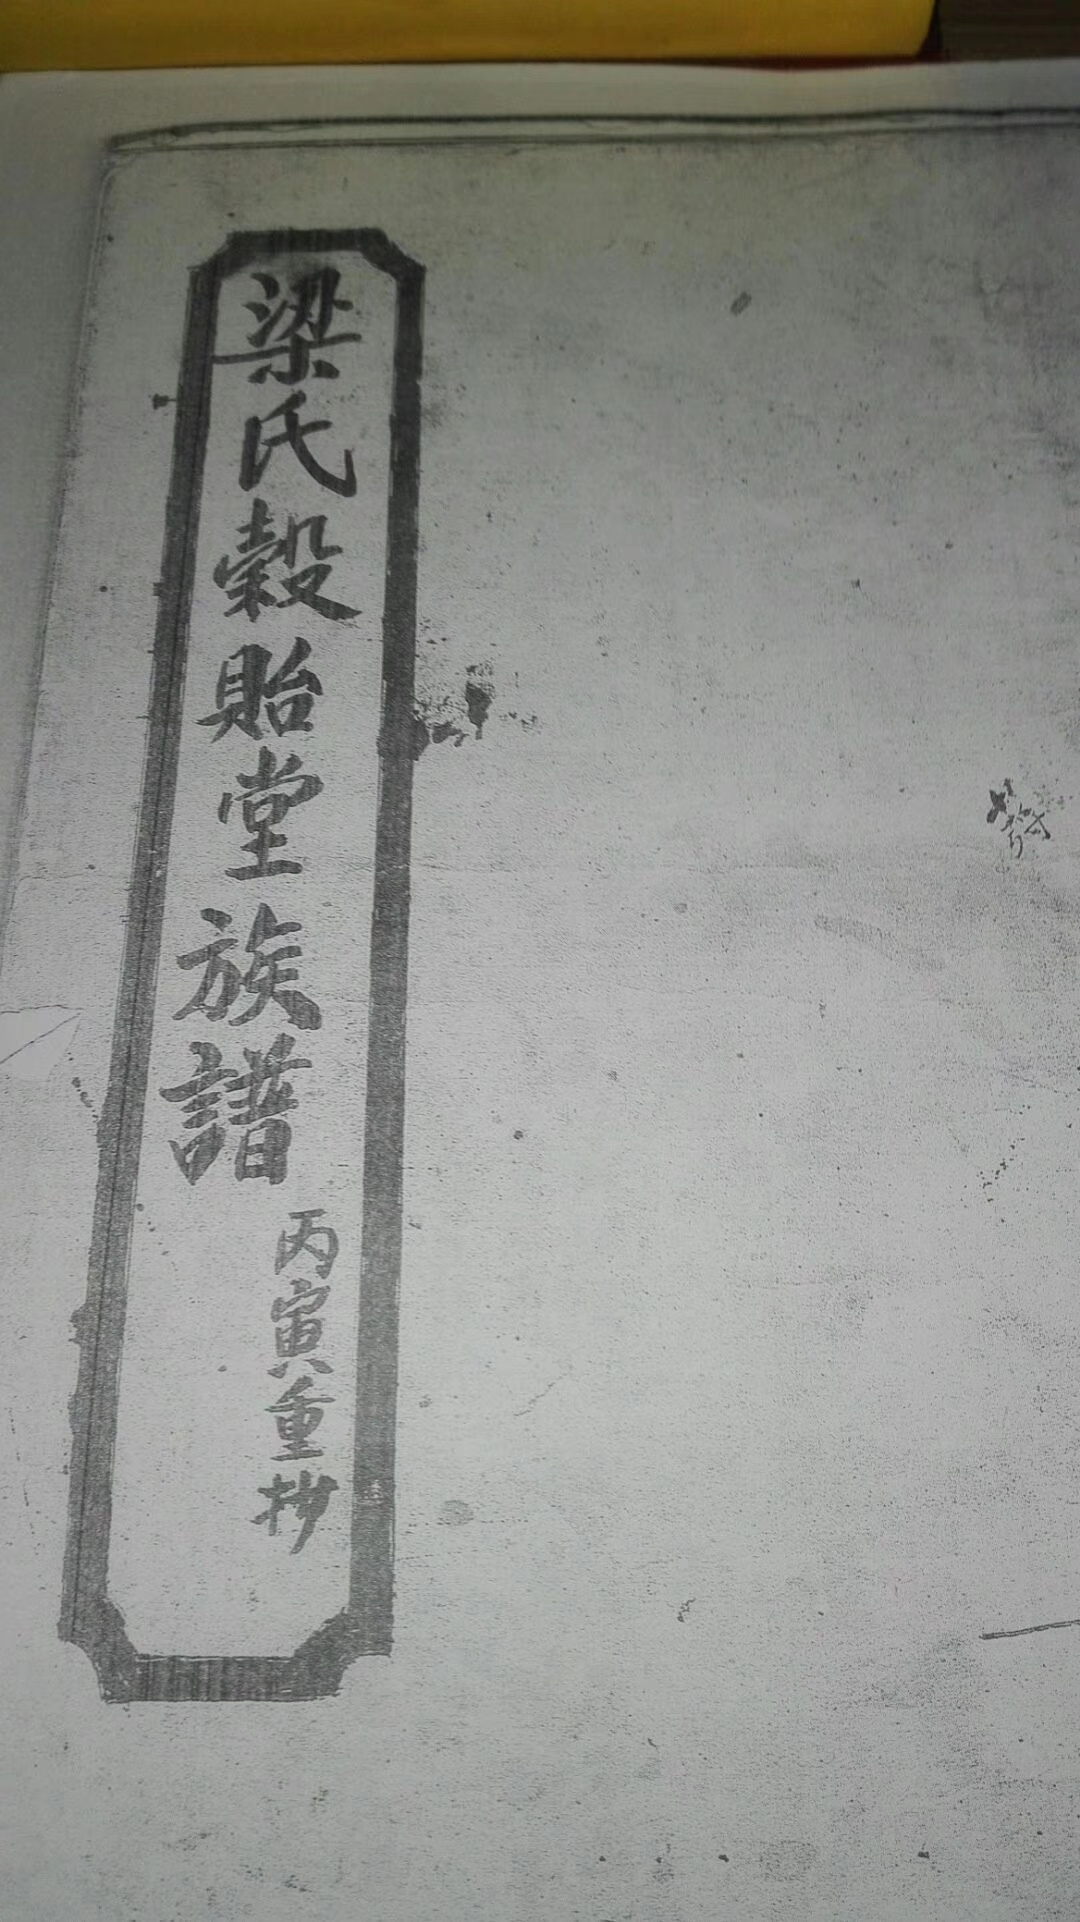 梁氏穀貽堂族譜
丙寅重抄